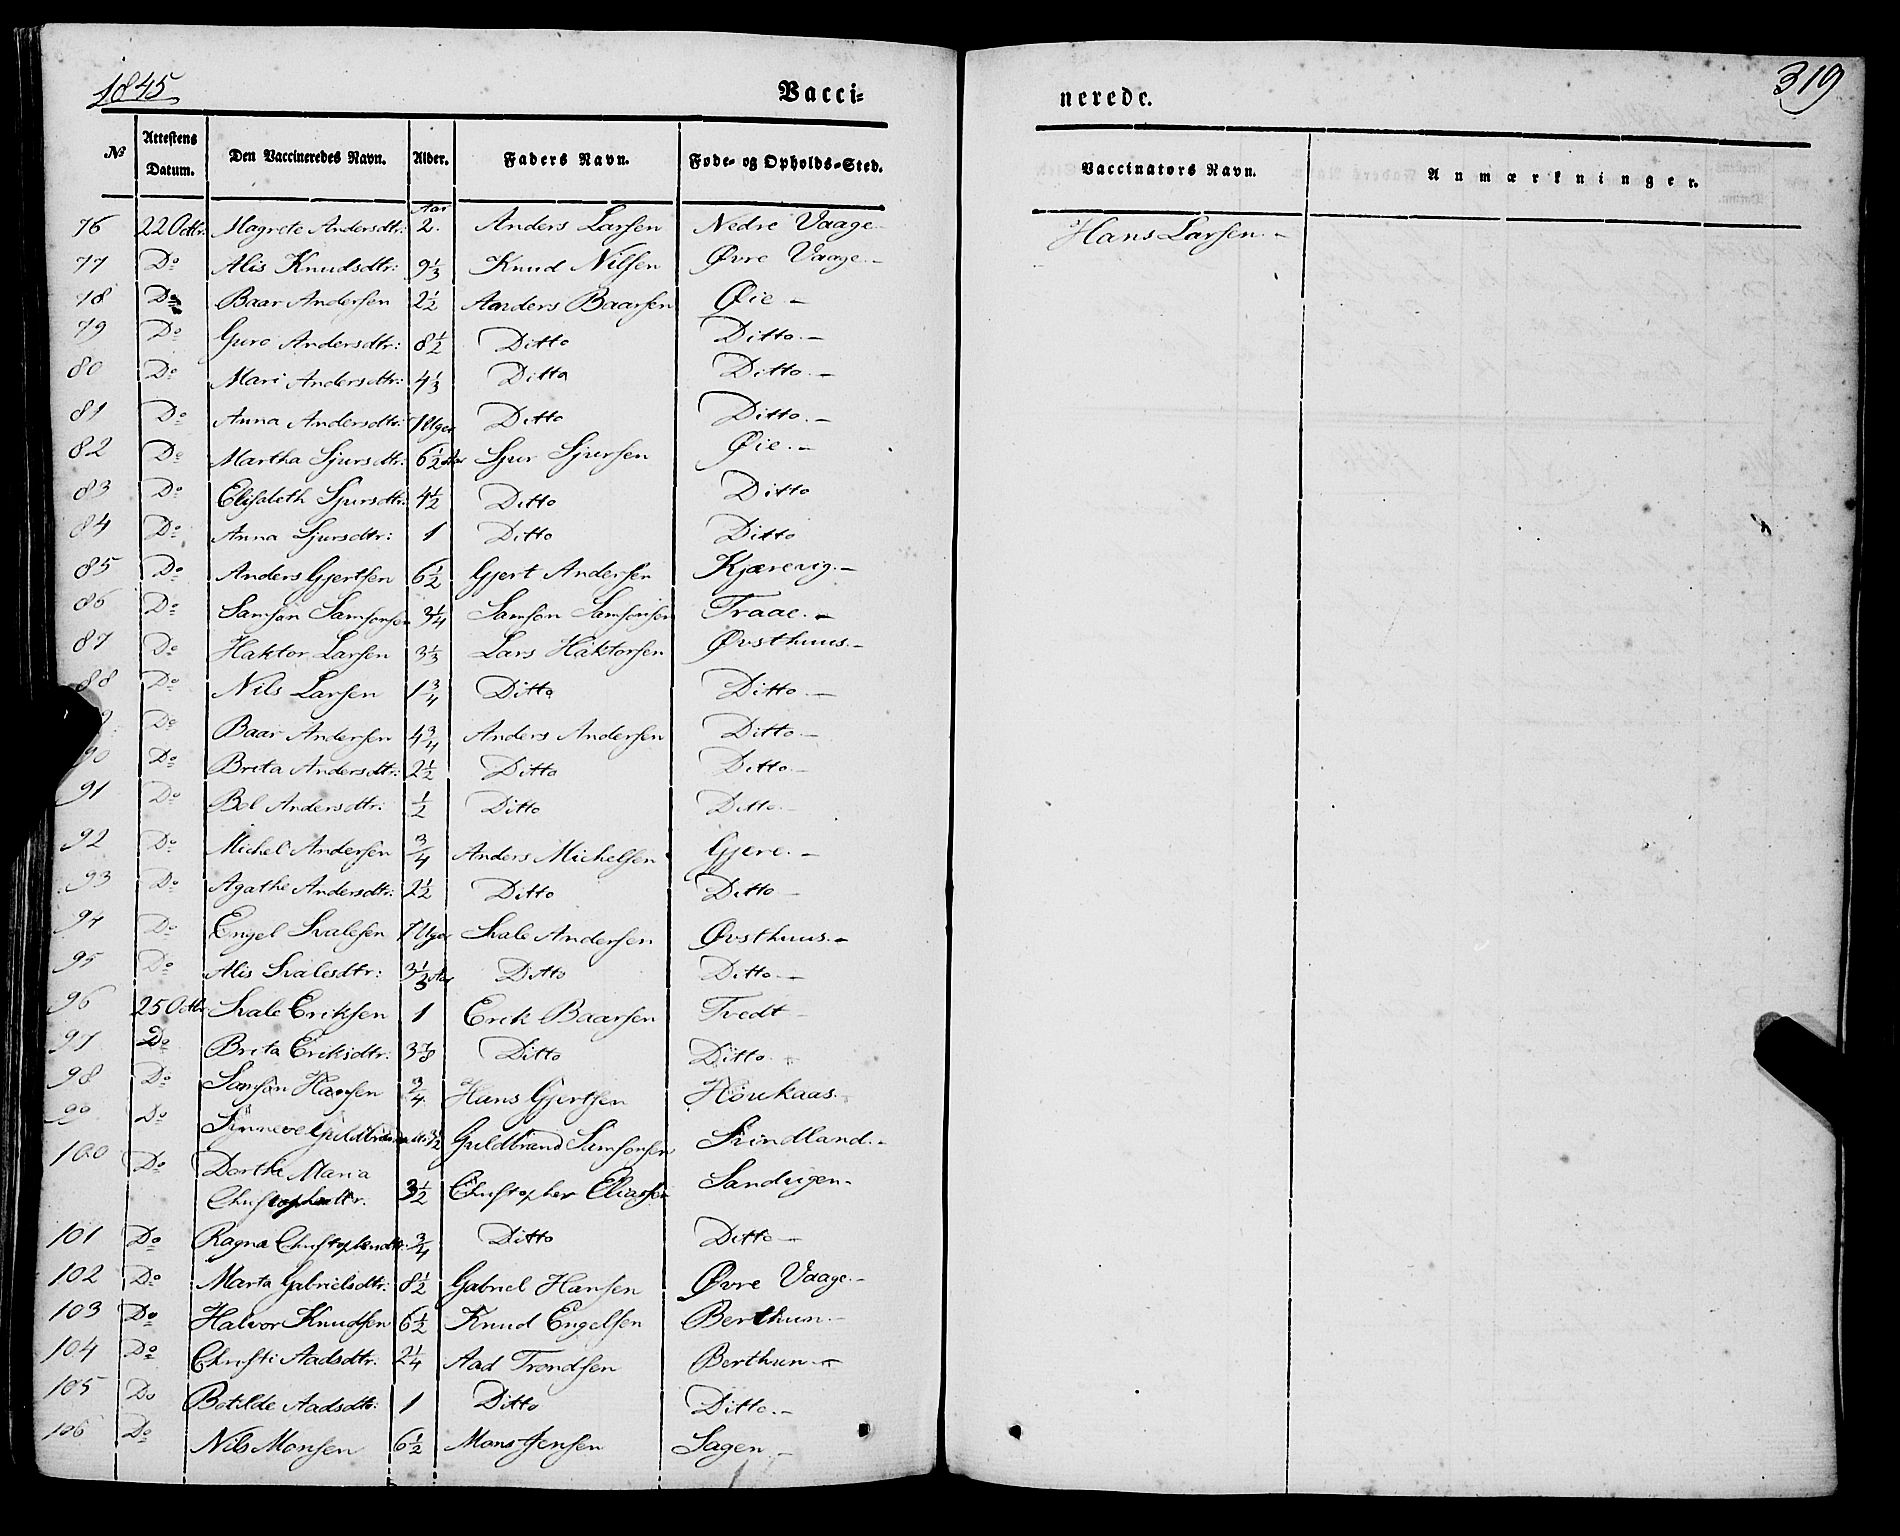 1845
Vacci-
nerede.
319
№ Attestens Datum. Den Vaccineredes Navn. Alder. Faders Navn. Føde- og Opholds-Sted. Vaccinators Navn. Anmærkninger.
Aar
76 22 Octbr. Magrete Andersdtr: 2. Anders Larsen Nedre Vaage Hans Larsen. -
77 Do Alis Knudsdtr: 9 1/3 Knud Nilsen Øvre Vaage. -
78 Do Baar Andersen 2 1/2 Anders Baarsen Øie -
79 Do Guro Andersdtr: 8 1/2 Ditto Ditto. -
80 Do Mari Andersdtr: 4 1/3 Ditto Ditto. -
81 Do Anna Andersdtr: 7 Uger Ditto Ditto. -
82 Do Martha Sjursdtr: 6 1/2 Aar Sjur Sjursen Øie. -
83 Do Elisabeth Sjursdtr: 4 1/2 Ditto Ditto
84 Do Anna Sjursdtr: 1 Ditto Ditto
85 Do Anders Gjertsen 6 1/2 Gjert Andersen Kjærevig. -
86 Do Samson Samsonsen 3/4 Samson Samsonsen Traae. -
87 Do Haktor Larsen 3 1/3 Lars Haktorsen Øvsthuus. -
88 Do Nils Larsen 1 3/4 Ditto Ditto. -
9 Do Baar Andersen 4 3/4 Anders Andersen Ditto. -
90 Do Brita Andersdtr: 2 1/2 Ditto Ditto. -
91 Do Bol Andersdtr: 1/2 Ditto Ditto. -
92 Do Michel Andersen 3/4 Anders Michelsen Gjere. -
93 Do Agathe Andersdtr: 2 1/2 Ditto Ditto -
94 Do Engel Svalesen 7 Uger Svale Andersen Øvsthuus. -
95 Do Alis Svalesdtr: 3 1/3 Aar Ditto Ditto. -
96 25 Octbr. Svale Eriksen 1 Erik Baarsen Tvedt -
97 Do Brita Eriksdtr: 3 7/8 Ditto Ditto.
98 Do Samson Hansen 3/4 Hans Gjertsen Houkaas.
99 Do Synneve 3 1/2 Guldbrand Samsonsen Svindland. -
100 Do Dorthe Maria
Christophersdtr. 3 1/2 Christopher Eliassen Sandvigen -
101 Do Ragna Christophersdtr: 3/4 Ditto Ditto -
102 Do Marta Gabrielsdtr: 8 1/2 Gabriel Hansen Øvre Vaage. -
103 Do Halvor Knudsen 6 1/2 Knud Engelsen Berthun. -
104 Do Christi Aadsdtr: 2 1/4 Aad Trondsen Berthun. -
105 Do Botilde Aadsdtr: 1 Ditto Ditto. -
106 Do Nils Monsen 6 1/2 Mons Jensen Sagen. -